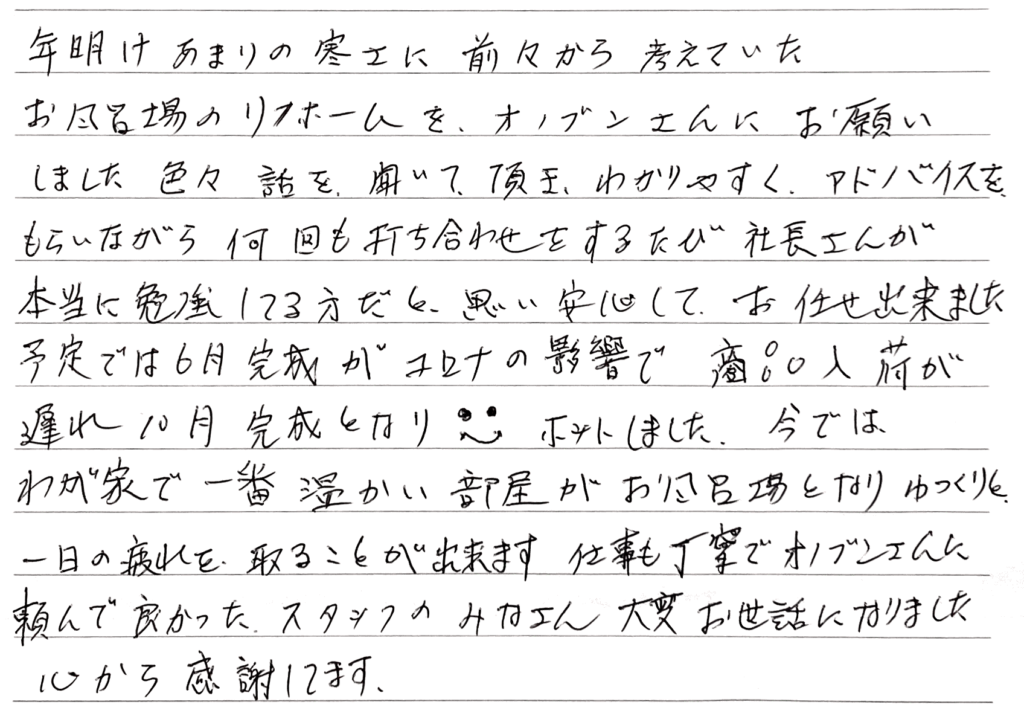 年明け あまりの寒さに 前々から 考えていた
お風呂場のリフォームを、オノブンさんに お願い
しました 色々 話を、聞いて、頂き、わかりやすく、アドバイスを、
もらいながら 何回も打ち合わせをするたび 社長さんが
本当に勉強してる方だと、思い 安心して、お任せ出来ました
予定では6月完成がコロナの影響で 商品入荷が
遅れ 10月 完成となり ホットしました、今では、
わが家で一番 温かい 部屋が お風呂場となり ゆっくりと、
一日の疲れを、取ることが出来ます 仕事も丁寧でオノブンさんに
頼んで良かった、スタッフの みなさん 大変 お世話になりました
心から 感謝してます、